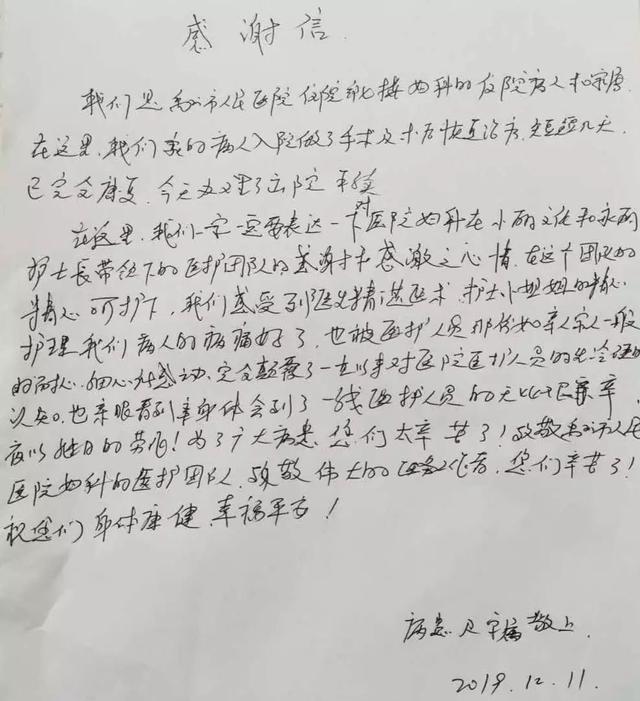 感谢信
我们是禹州市人民医院住院部七楼妇科的住院病人和家属.
在这里.我们家的病人入院做了手术及术后恢复治疗,短短几天,
已完全康复.今天办理了出院手续
在这里,我们一定要表达一下对医院妇科 主任和永丽
护士长带领下的医护团队的感谢和感激之心情.在这个团队的
精心呵护下,我们感受到医生精湛医术,护士小姐姐的精心
护理.我们病人的病痛好了,也被医护人员那份如亲人家人一般
的耐心.细心所感动.完全颠覆了一直以来对医院医护人员的
以为。也亲眼看到亲身体会到了一线医护人员的无比艰辛,
夜以继日的劳作!为了广大病患,您们太辛苦了!致敬禹州市人民
医院妇科的医护团队,致敬伟大的医务工作者,您们辛苦了!
祝您们身体康健,幸福平安!
病患及家属敬上.
2019.12.11.